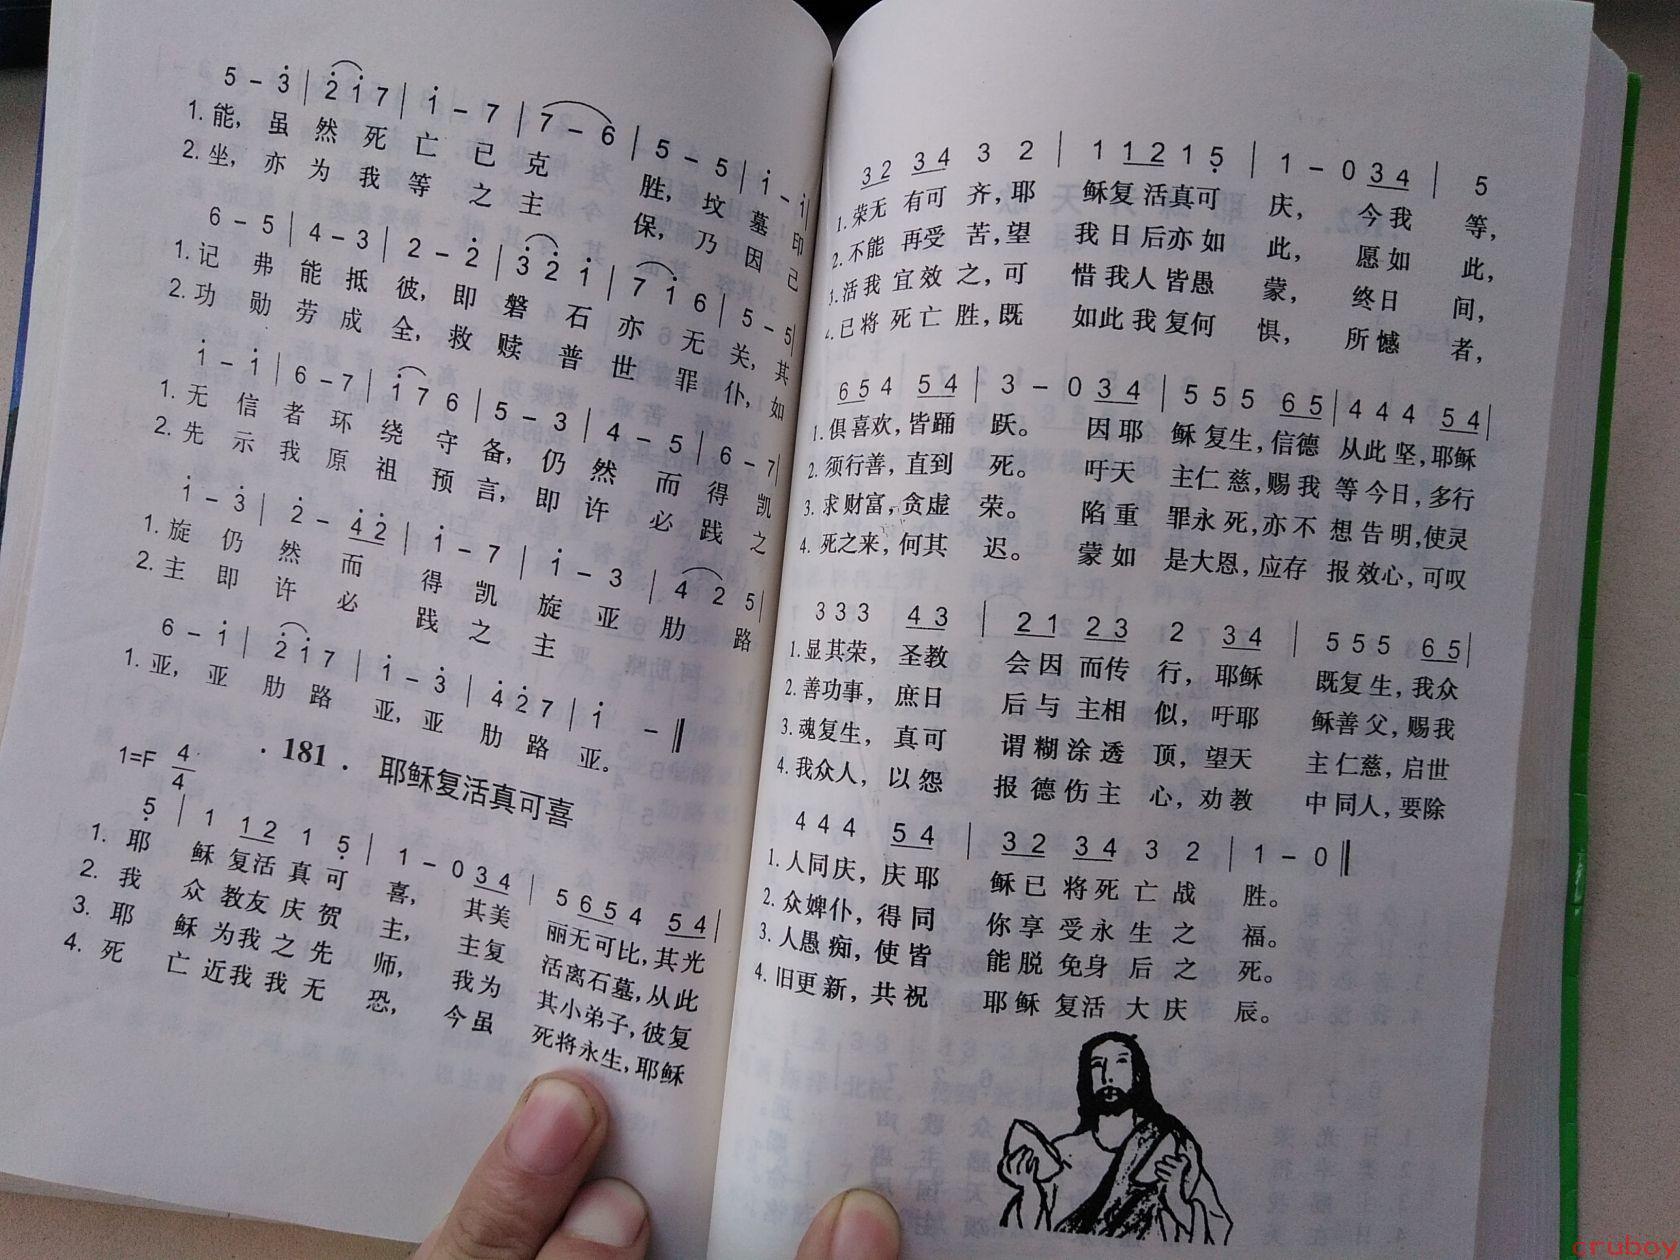 5 – 3̇ | 2̇ 1̇ 7 | 1̇ – 7 | 7 – 6 | 5 – 5 | 1̇ – 1̇ |
1. 能, 虽 然 死 亡 已 克 胜, 坟 墓 印
2. 坐, 亦 为 我 等 之 主 保, 乃 因 已
6 – 5 | 4 – 3 | 2 – 2̇ | 3̇ 2̇ 1̇ | 7 1̇ 6 | 5 – 5 |
1. 记 弗 能 抵 彼, 即 磐 石 亦 无 关, 其
2. 功 勋 劳 成 全, 救 赎 普 世 罪 仆, 如
1̇ – 1̇ | 6 – 7 | 1̇ 7 6 | 5 – 3 | 4 – 5 | 6 – 7 |
1. 无 信 者 环 绕 守 备, 仍 然 而 得 凯
2. 先 示 我 原 祖 预 言, 即 许 必 践 之
1̇ – 3̇ | 2̇ – 4̇ 2̇ | 1̇ – 7 | 1̇ – 3 | 4 2 5 |
1. 旋 仍 然 而 得 凯 旋 亚 肋 路
2. 主 即 许 必 践 之 主
6 – 1̇ | 2̇ 1̇ 7 | 1̇ – 3̇ | 4̇ 2̇ 7 | 1̇ – ‖
1. 亚, 亚 肋 路 亚, 亚 肋 路 亚。
· 181 . 耶稣复活真可喜
1=F 4/4
5̣ | 1 1 2 1 5̣ | 1 – 0 3 4 | 5 6 5 4 5 4 |
1. 耶 稣 复活 真 可 喜, 其美 丽无可比, 其光
2. 我 众 教友 庆 贺 主, 主复 活离石墓, 从此
3. 耶 稣 为我 之 先 师, 我为 其小弟子, 彼复
4. 死 亡 近我 我 无 恐, 今虽 死将永生, 耶稣
3 2 3 4 3 2 | 1 1 2 1 5̣ | 1 – 0 3 4 | 5
1. 荣无 有可 齐, 耶 稣复活真可 庆, 今我 等,
2. 不能 再受 苦, 望 我日后亦如 此, 愿如 此,
3. 活我 宜效 之, 可 惜我人皆愚 蒙, 终日 间,
4. 已将 死亡 胜, 既 如此我复何 惧, 所憾 者,
6 5 4 5 4 | 3 – 0 3 4 | 5 5 5 6 5 | 4 4 4 5 4 |
1. 俱喜欢, 皆踊 跃。 因耶 稣复生, 信德 从此坚, 耶稣
2. 须行善, 直到 死。 吁天 主仁慈, 赐我 等今日, 多行
3. 求财富, 贪虚 荣。 陷重 罪永死, 亦不 想告明, 使灵
4. 死之来, 何其 迟。 蒙如 是大恩, 应存 报效心, 可叹
3 3 3 4 3 | 2 1 2 3 2 3 4 | 5 5 5 6 5 |
1. 显其荣, 圣教 会因 而传 行, 耶稣 既复生, 我众
2. 善功事, 庶日 后与 主相 似, 吁耶 稣善父, 赐我
3. 魂复生, 真可 谓糊 涂透 顶, 望天 主仁慈, 启世
4. 我众人, 以怨 报德 伤主 心, 劝教 中同人, 要除
4 4 4 5 4 | 3 2 3 4 3 2 | 1 – 0 ‖
1. 人同庆, 庆耶 稣已 将死 亡 战 胜。
2. 众婢仆, 得同 你享 受永 生 之 福。
3. 人愚痴, 使皆 能脱 免身 后 之 死。
4. 旧更新, 共祝 耶稣 复活 大 庆 辰。
cruboy